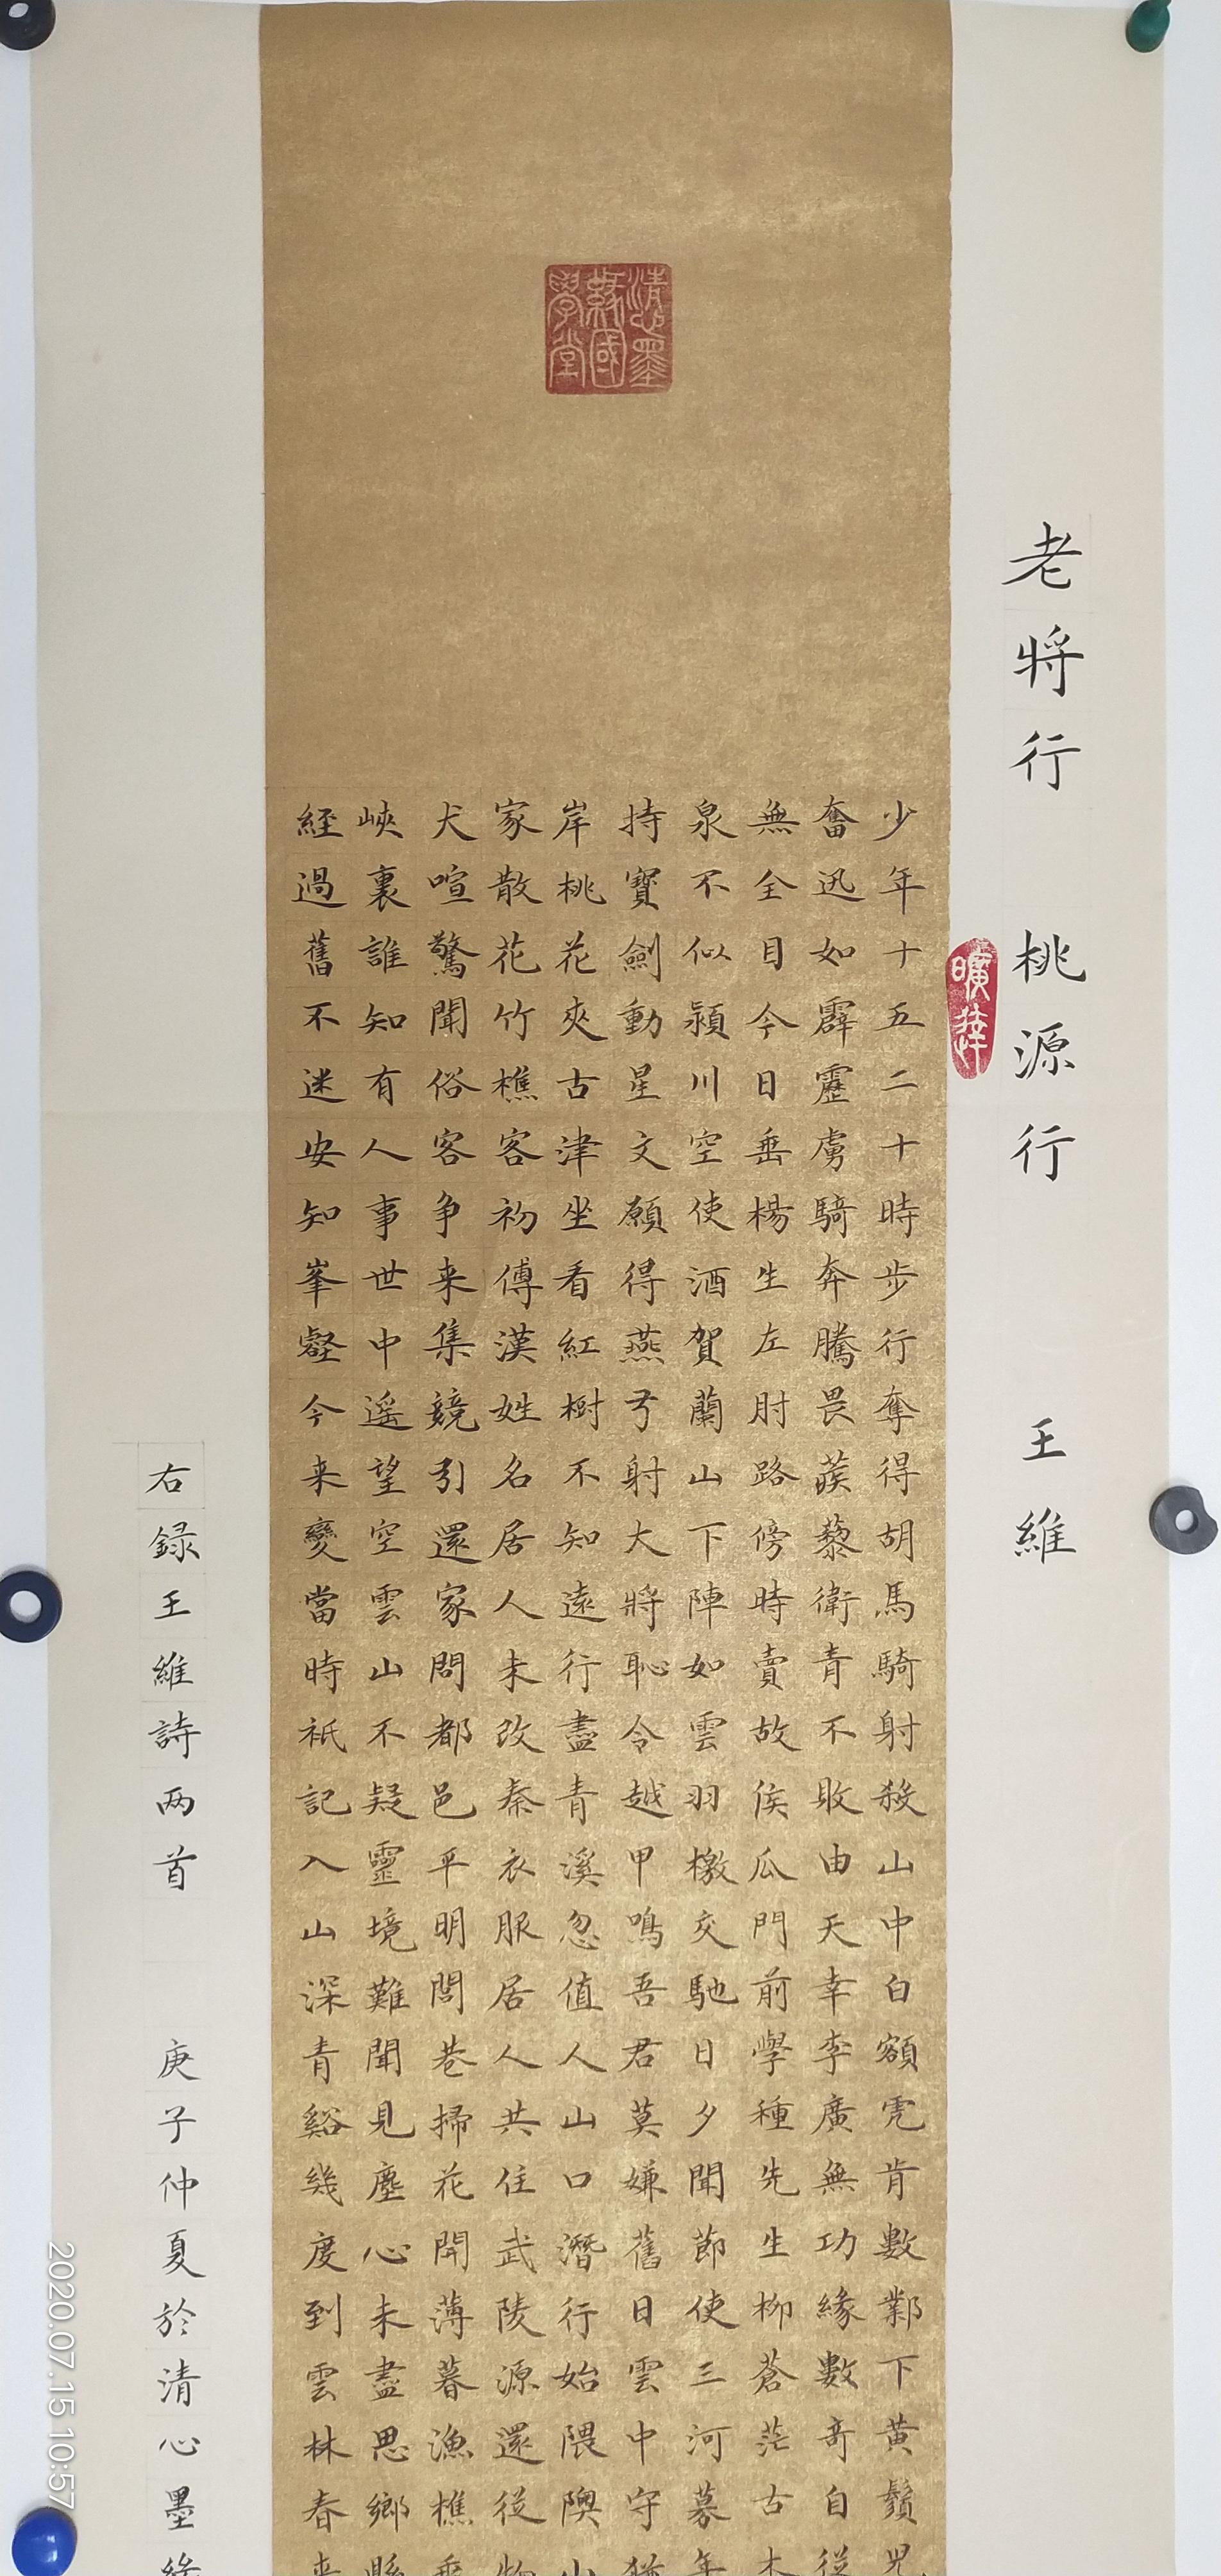 老将行 桃源行 王維
曠達
清心墨緣國學堂
少年十五二十時步行奪得胡馬騎射殺山中白額虎肯數鄴下黄鬚兒
奮迅如霹靂虜騎奔騰畏蒺藜衛青不敗由天幸李廣無功緣數奇自從
無全目今日垂楊生左肘路傍時賣故侯瓜門前學種先生柳蒼茫古木
泉不似潁川空使酒賀蘭山下陣如雲羽檄交馳日夕聞節使三河募年
持寶劍動星文願得燕弓射大將恥令越甲鳴吾君莫嫌舊日雲中守猶
岸桃花夾古津坐看紅樹不知遠行盡青溪忽值人山口潛行始隈隩山
家散花竹樵客初傅漢姓名居人未改秦衣服居人共住武陵源還從物
犬喧驚聞俗客争来集競引還家問都邑平明閭巷掃花開薄暮漁樵乘
峽裏誰知有人事世中遥望空雲山不疑靈境難聞見塵心未盡思鄉縣
經過舊不迷安知峯壑今来變當時衹記入山深青谿幾度到雲林春来
右録王維詩两首 庚子仲夏於清心墨緣
2020.07.15 10:57